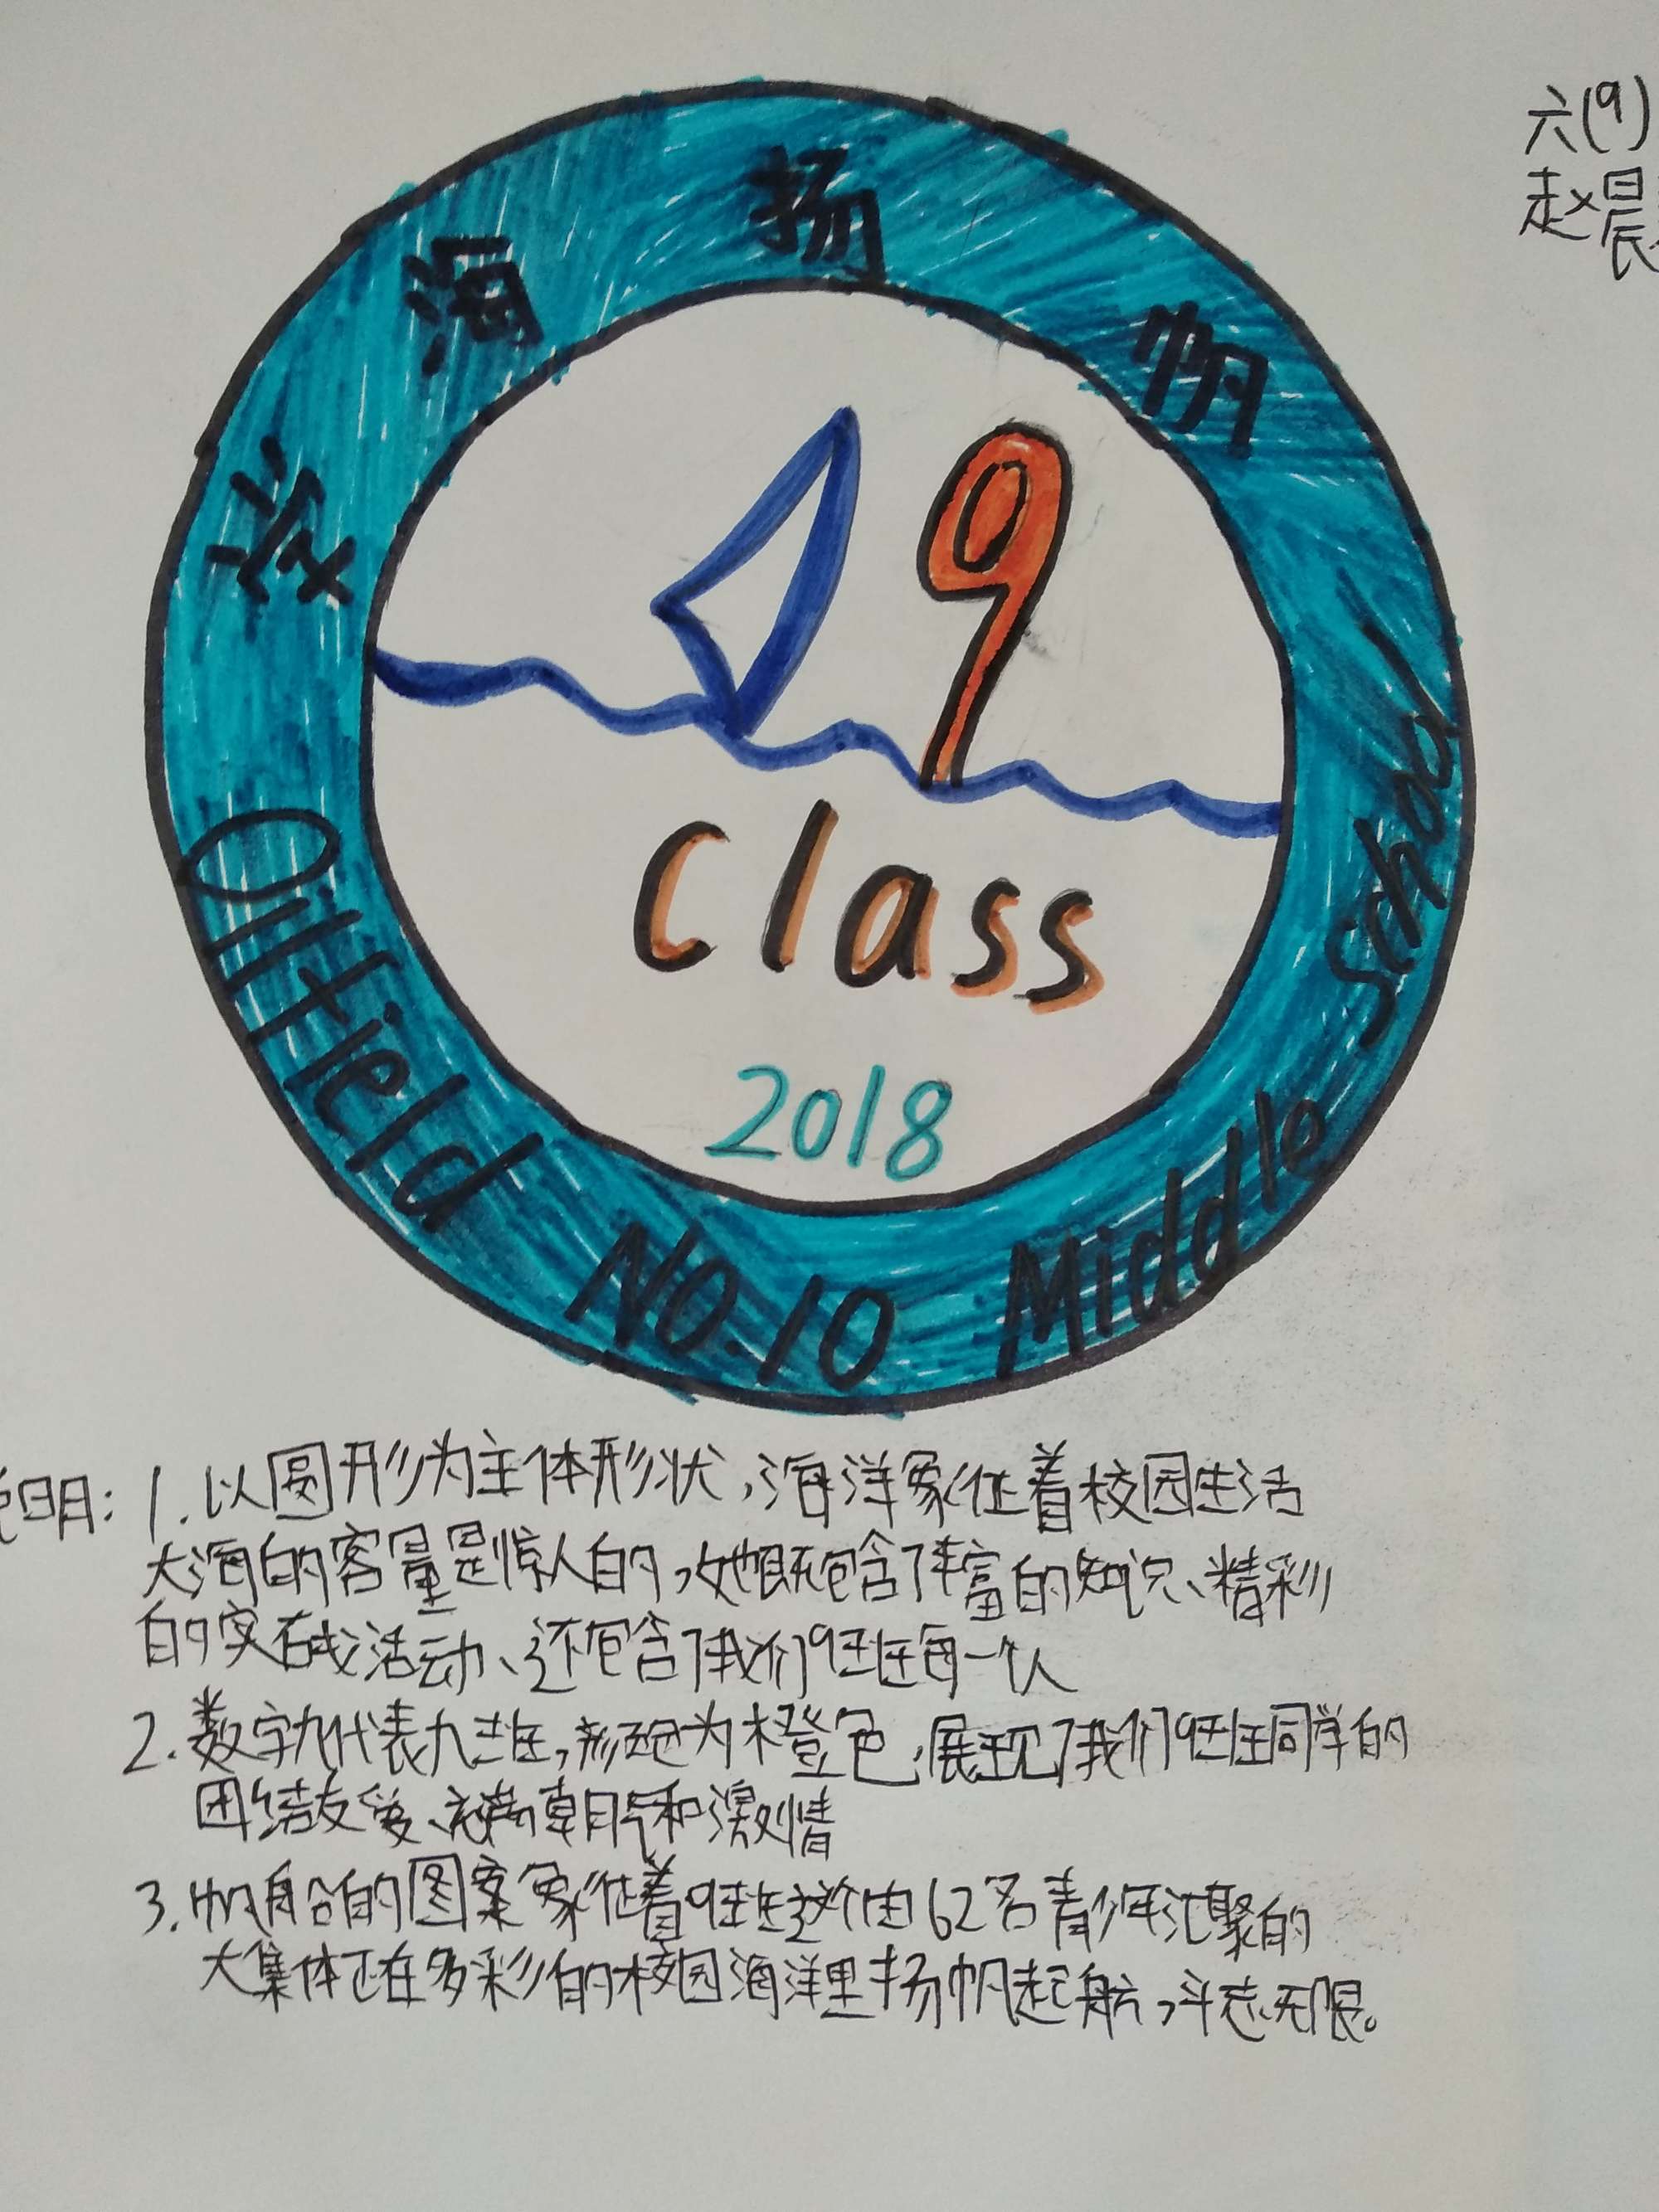 六(9)
赵晨
学海扬帆
9
Class
2018
Oilfield NO.10 Middle School
说明：1.以圆形为主体形状，海洋象征着校园生活
大海的容量是惊人的，她既包含了丰富的知识、精彩
的实践活动、还包含了我们9班每一个人
2.数字九代表九班，颜色为橙色，展现了我们9班同学的
团结友爱、充满朝气和激情
3.帆船的图案象征着9班这个由62名青少年汇聚的
大集体正在多彩的校园海洋里扬帆起航，斗志无限。